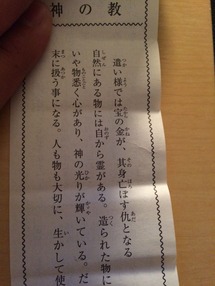 神の教
遣い様では宝の金が、其身亡ぼす仇となる
自然にある物には自から霊がある。造られた物に
いや物悉く心があり、神の光りが輝いている。だ
末に扱う事になる。人も物も大切に、生かして使